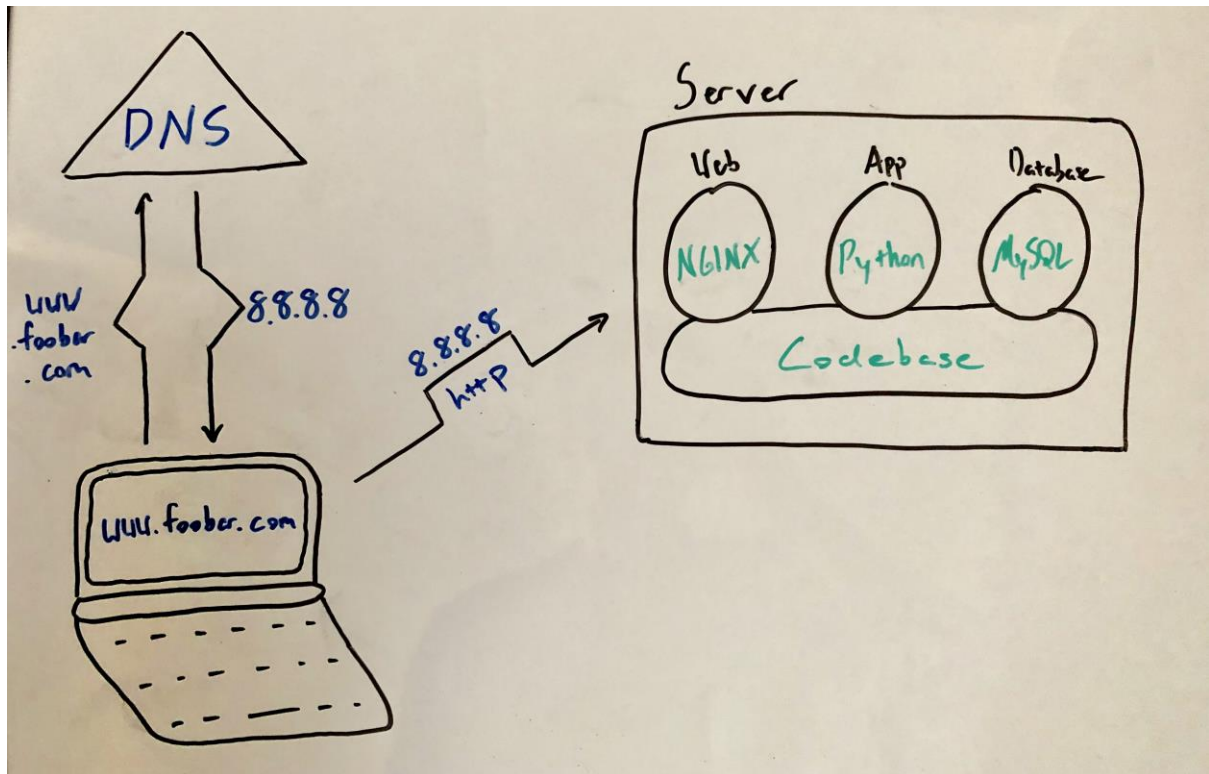 DNS
www
.foobar
.com
8.8.8.8
www.foobar.com
8.8.8.8
http
Server
Web
App
Database
NGINX
Python
MySQL
Codebase